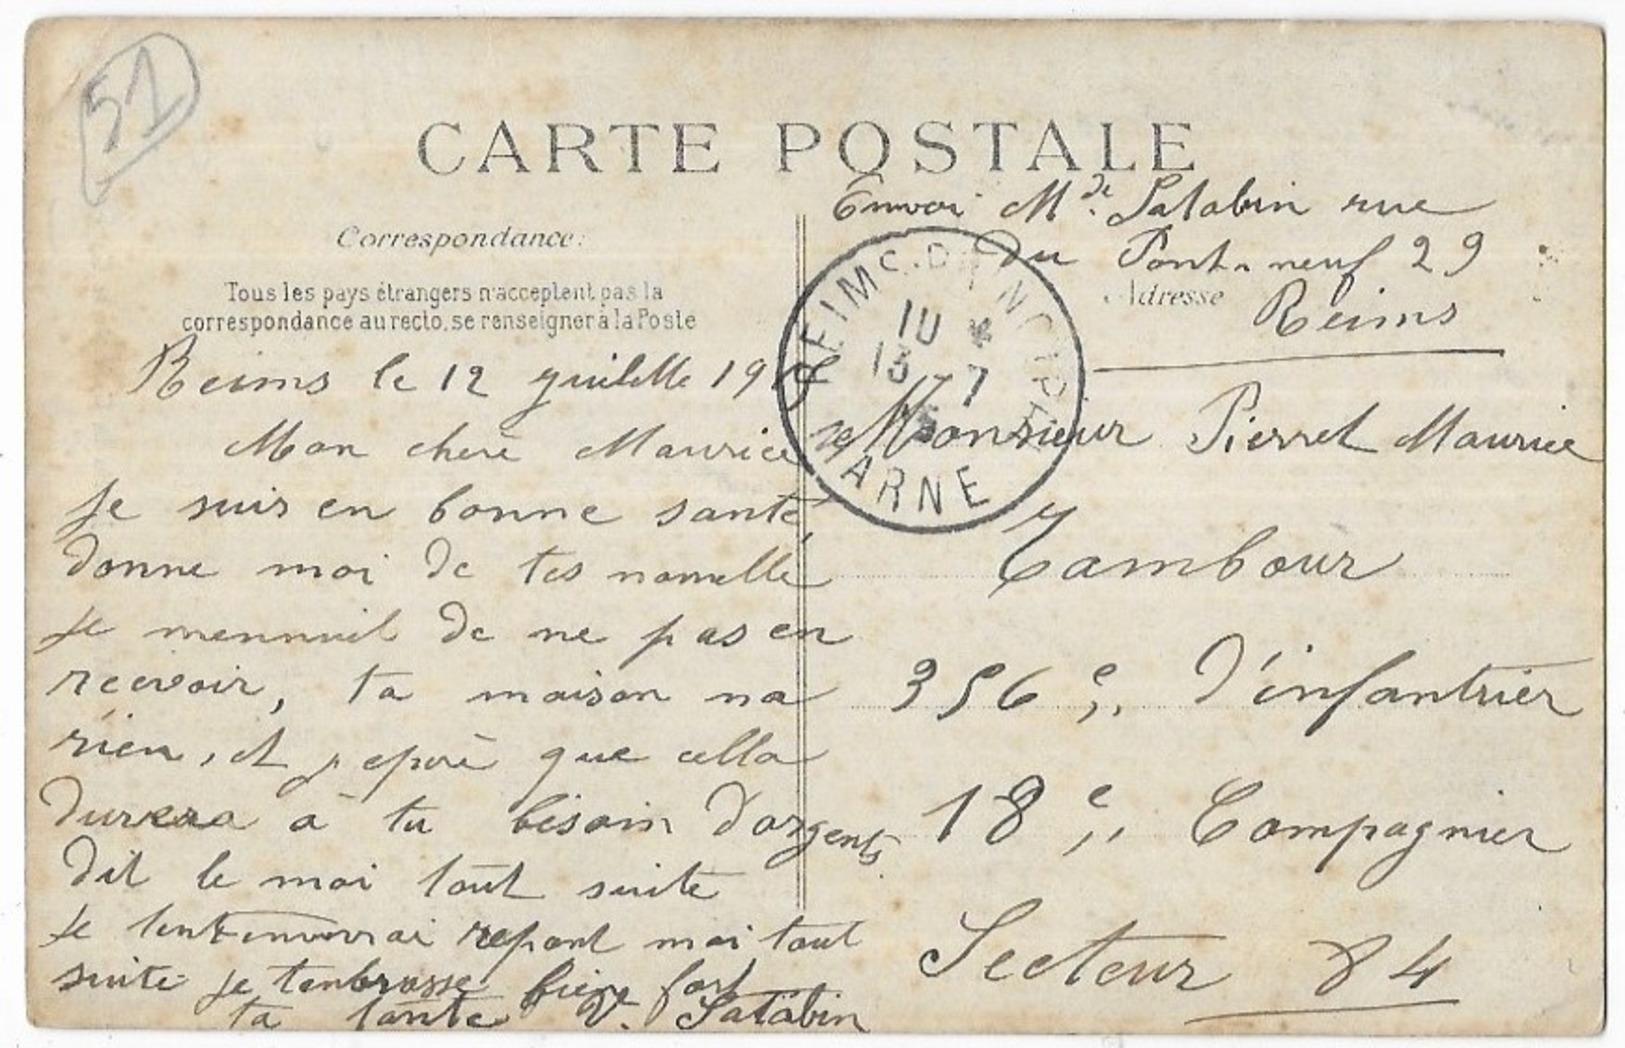 51
CARTE POSTALE
Envoi Mde Satabin rue
Du Pont-neuf 29
Reims
Correspondance:
Adresse
Tous les pays étrangers n'acceptent pas la
correspondance au recto, se renseigner à la Poste
REIMS
10 *
13 7
MARNE
Reims le 12 juilette 1915
Mon cherè Maurice
Je suis en bonne santé,
donne moi de tes nouvelle
je mennuit de ne pas en
recevoir, ta maison na
rien, et j'eporè que cella
durera à tu bésoin d'argents
dit le moi tout suite
Je répont moi tout
suite je tenbrasse bien fort
ta tante V. Satabin
Monsieur Pierret Maurice
Tambour
356e,, d'infantrièr
18e,, Compagnier
Secteur 84